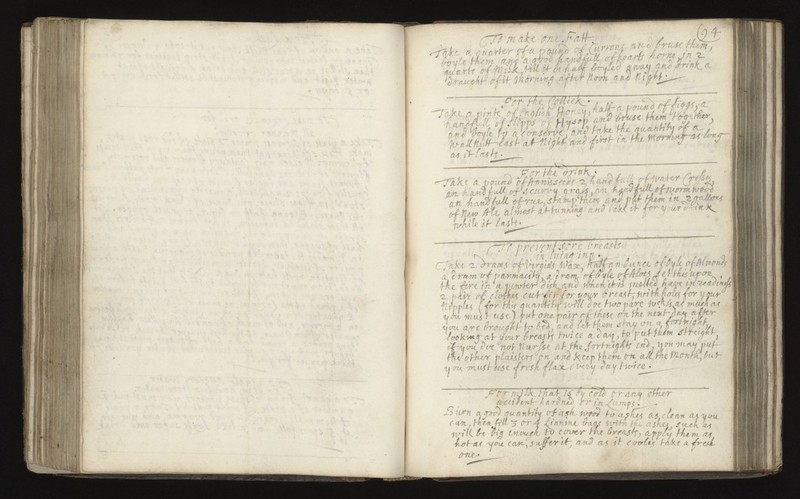 94
To make one Fatt
Take a quarter of a pound of Currons and bruse them,
boyle them and a good handfull of hearts horne in 2
quarts of Milk, till it be half boyled away and drink a
draught of it Morning after Noon and Night.
For the Collick.
Take a pinte of English Honey, half a pound of figgs, a
handfull of Hysop and bruse them together,
and boyle to a Conserve, and take the quantity of a
WallNutt Last at Night and first in the Morning as long
as it lasts.
For the drink.
Take a pound of Annaseeds 2 hand full of water Cresses
an handfull of Scurvy grass, an handfull of wormwood
an handfull of rue, stamp them and put them in 2 gallons
of New Ale almost at tunning and take it for your drink
while it lasts.
To prevent sore breasts
in lying inn.
Take 2 drams of Virgins Wax, half an Ounce of Oyle of Almonds
a dram of parmacity, a dram of Oyle of set this upon
the fire in a pewter dish, and when it is melted have in readiness
2 pair of clothes cut fit for your breast, with holes for your
Nipples (for this quantity will doe two pare which is as much as
you must use) put one pair of these on the next day after
you are brought to bed, and let them stay on a fortnight
looking at your breasts twice a day, to put them streight,
if you doe not Nurse at the fortnights end, you may put
the other plaisters on and keep them on all the Month, but
you must use fresh flax every day twice.
For milk that is by cold or any other
accident hardned or in Lumps.
Burn a good quantity of ash wood to ashes as clean as you
can, then fill 3 or 4 Linnine bags with the ashes, such as
will be big enough to cover the breasts, apply them as
hot as you can suffer it, and as it cooles take a fresh
one.